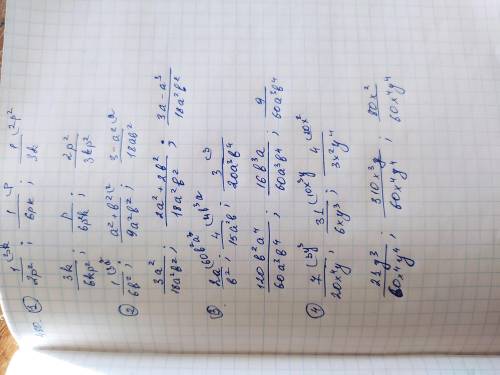 ① 1/2p² ⁽³ᵏ ; 1/6pk ⁽ᵖ ; p/3k ⁽²ᵖ²
3k/6kp² ; p/6p²k ; 2p²/3kp²
② 1/6b² ⁽³ᵃ² ; a²+b²/9a²b² ⁽² ; 3-a²/18ab² ⁽ᵃ
3a²/18a²b² ; 2a²+2b²/18a²b² ; 3a-a³/18a²b²
③ 2a/b² ; 4/15a²b ; 3/20a³b⁴ ⁽³
120b²a⁴/60a³b⁴ ; 16b³a/60a³b⁴ ; 9/60a³b⁴
④ 7/20x⁴y ⁽³ʸ³ ; 31/6xy³ ⁽¹⁰ˣ³ʸ ; 4/3x²y⁴ ⁽²⁰ˣ²
21y³/60x⁴y⁴ ; 310x³y/60x⁴y⁴ ; 80x²/60x⁴y⁴